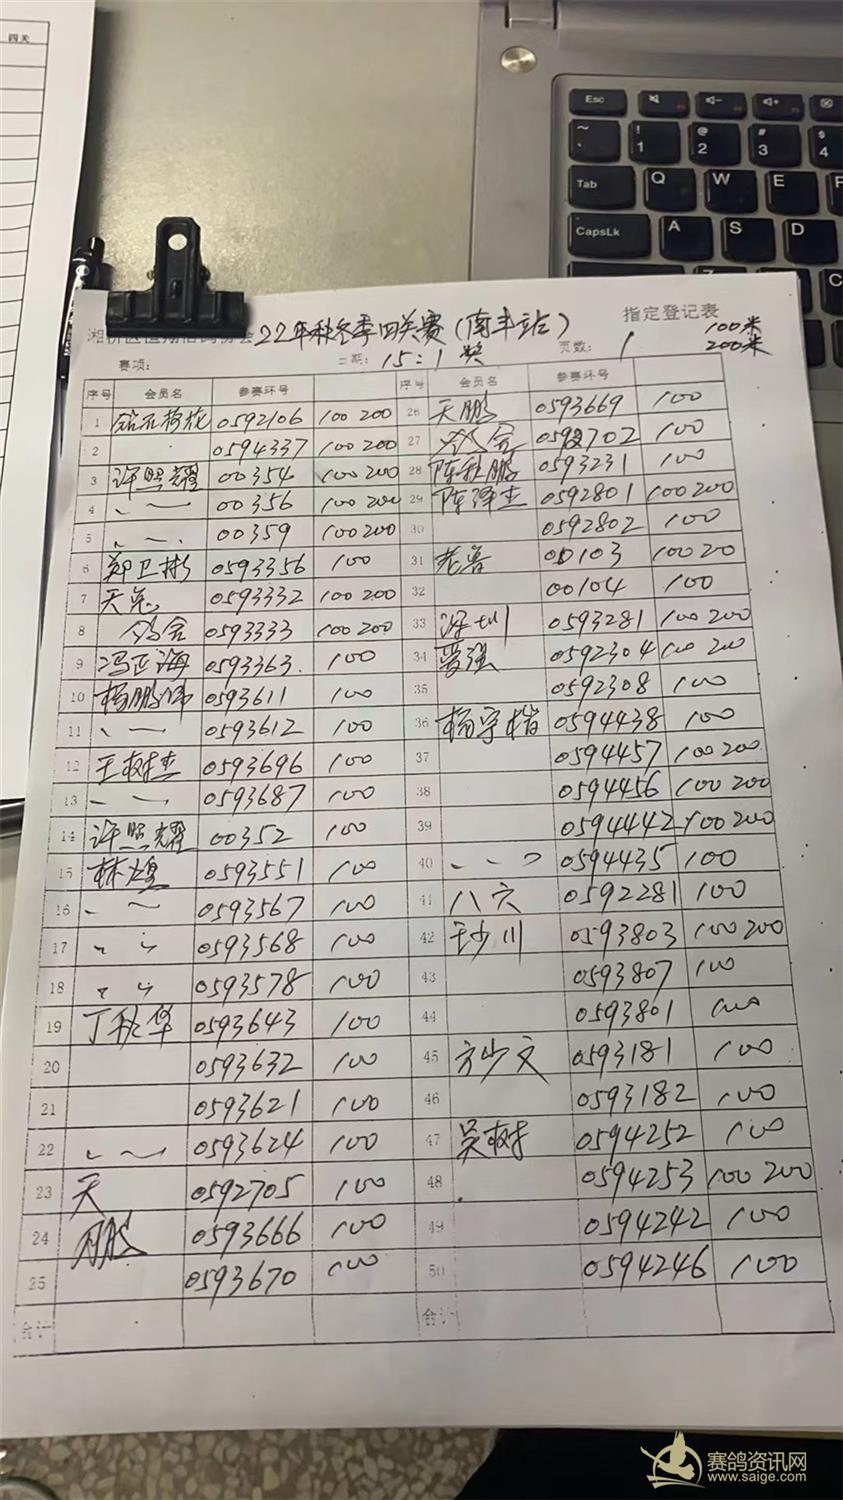 四关
Esc
~ ` ! 1 @ 2 # 3 $ 4
Tab Q W E
CapsLk A S D
22年秋冬季四关赛(南丰站) 指定登记表 100米
赛项: 15:1奖 页数: 1 200米
序号 会员名 参赛环号 序号 会员名 参赛环号
1 0592106 100 200 26 天鹏 0593669 100
2 0594337 100 200 27 鸽舍 0592702 100
3 许照耀 00354 100 200 28 陈秋鹏 0593231 100
4 00356 100 200 29 陈泽杰 0592801 100 200
5 00359 100 200 30 0592802 100
6 郑卫彬 0593356 100 31 00103 100 20
7 天 0593332 100 200 32 00104 100
8 鸽舍 0593333 100 200 33 0593281 100 200
9 冯正海 0593363 100 34 0592304 100 200
10 杨鹏 0593611 100 35 0592308 100
11 0593612 100 36 杨宇楷 0594438 100
12 王树杰 0593696 100 37 0594457 100 200
13 0593687 100 38 0594456 100 200
14 许照耀 00352 100 39 0594442 100 200
15 林煌 0593551 100 40 0594435 100
16 0593567 100 41 八六 0592281 100
17 0593568 100 42 王少川 0593803 100 200
18 0593578 100 43 0593807 100
19 丁秋华 0593643 100 44 0593801 100
20 0593632 100 45 方少文 0593181 100
21 0593621 100 46 0593182 100
22 0593624 100 47 吴树 0594252 100
23 天 0592705 100 48 0594253 100 200
24 鹏 0593666 100 49 0594242 100
25 0593670 100 50 0594246 100
合计 合计
赛鸽资讯网
www.saige.com